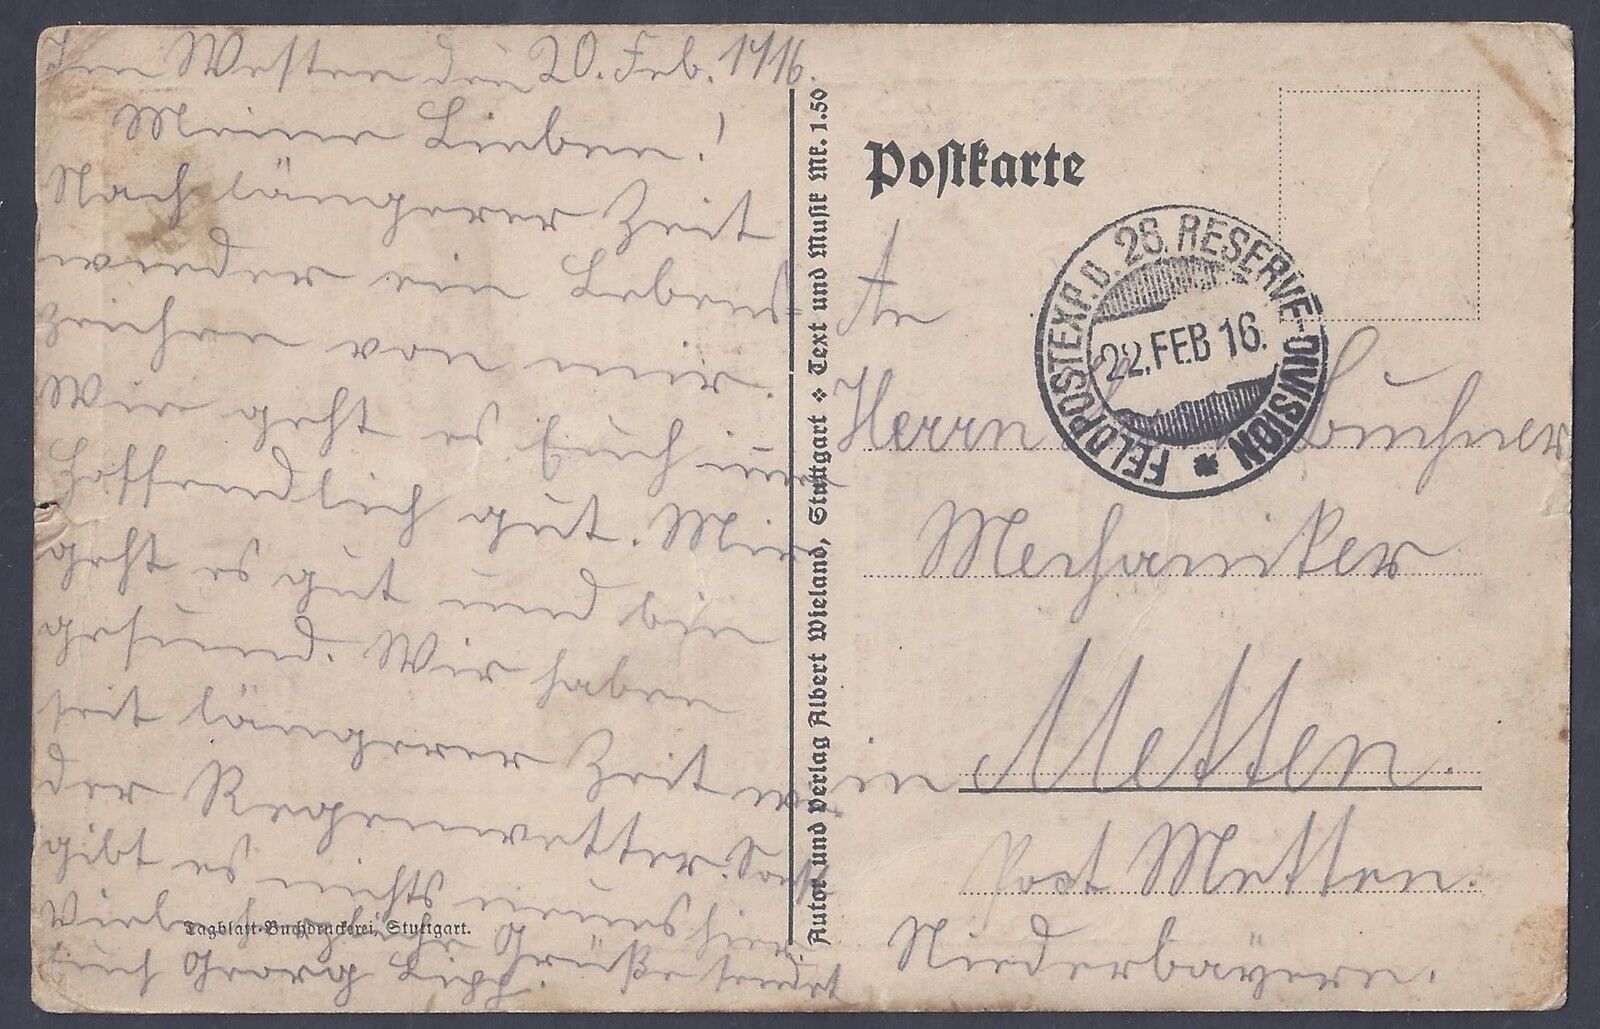 Im Westen den 20. Feb. 1916.
Meine Lieben!
Nach längerer Zeit
wieder ein Lebens=
zeichen von mir.
Wie geht es Euch immer
hoffendlich gut. Mir
geht es gut und bin
gesund. Wir haben
seit längerer Zeit wie-
der Regenwetter. Sonst
gibt es nichts neues hier
Viele herzliche Grüße sendet
Euch Georg
Tagblatt-Buchdruckerei, Stuttgart.
Autor und Verlag Albert Wieland, Stuttgart ❖ Text und Musik Mk. 1.50
Postkarte
FELDPOSTEXP. D. 28. RESERVE-DIVISION *
22. FEB 16.
An
Herrn Buchner
Mechaniker
in Metten.
Post Metten.
Niederbayern.